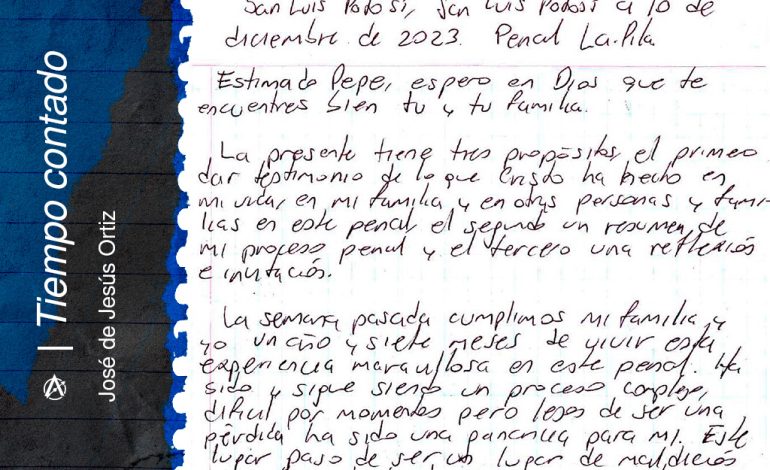 Tiempo contado
José de Jesús Ortiz
San Luis Potosí, San Luis Potosí a 10 de
diciembre de 2023. Penal La Pila
Estimado Pepe, espero en Dios que te
encuentres bien tu y tu familia.
La presente tiene tres propósitos, el primero
dar testimonio de lo que Cristo ha hecho en
mi vida, en mi familia y en otras personas y fami-
lias en este penal, el segundo un resumen de
mi proceso penal y el tercero una reflexión
e invitación.
La semana pasada cumplimos mi familia y
yo un año y siete meses de vivir esta
experiencia maravillosa en este penal. Ha
sido y sigue siendo un proceso complejo,
difícil por momentos pero lejos de ser una
pérdida ha sido una ganancia para mi. Este
lugar paso de ser un lugar de maldición